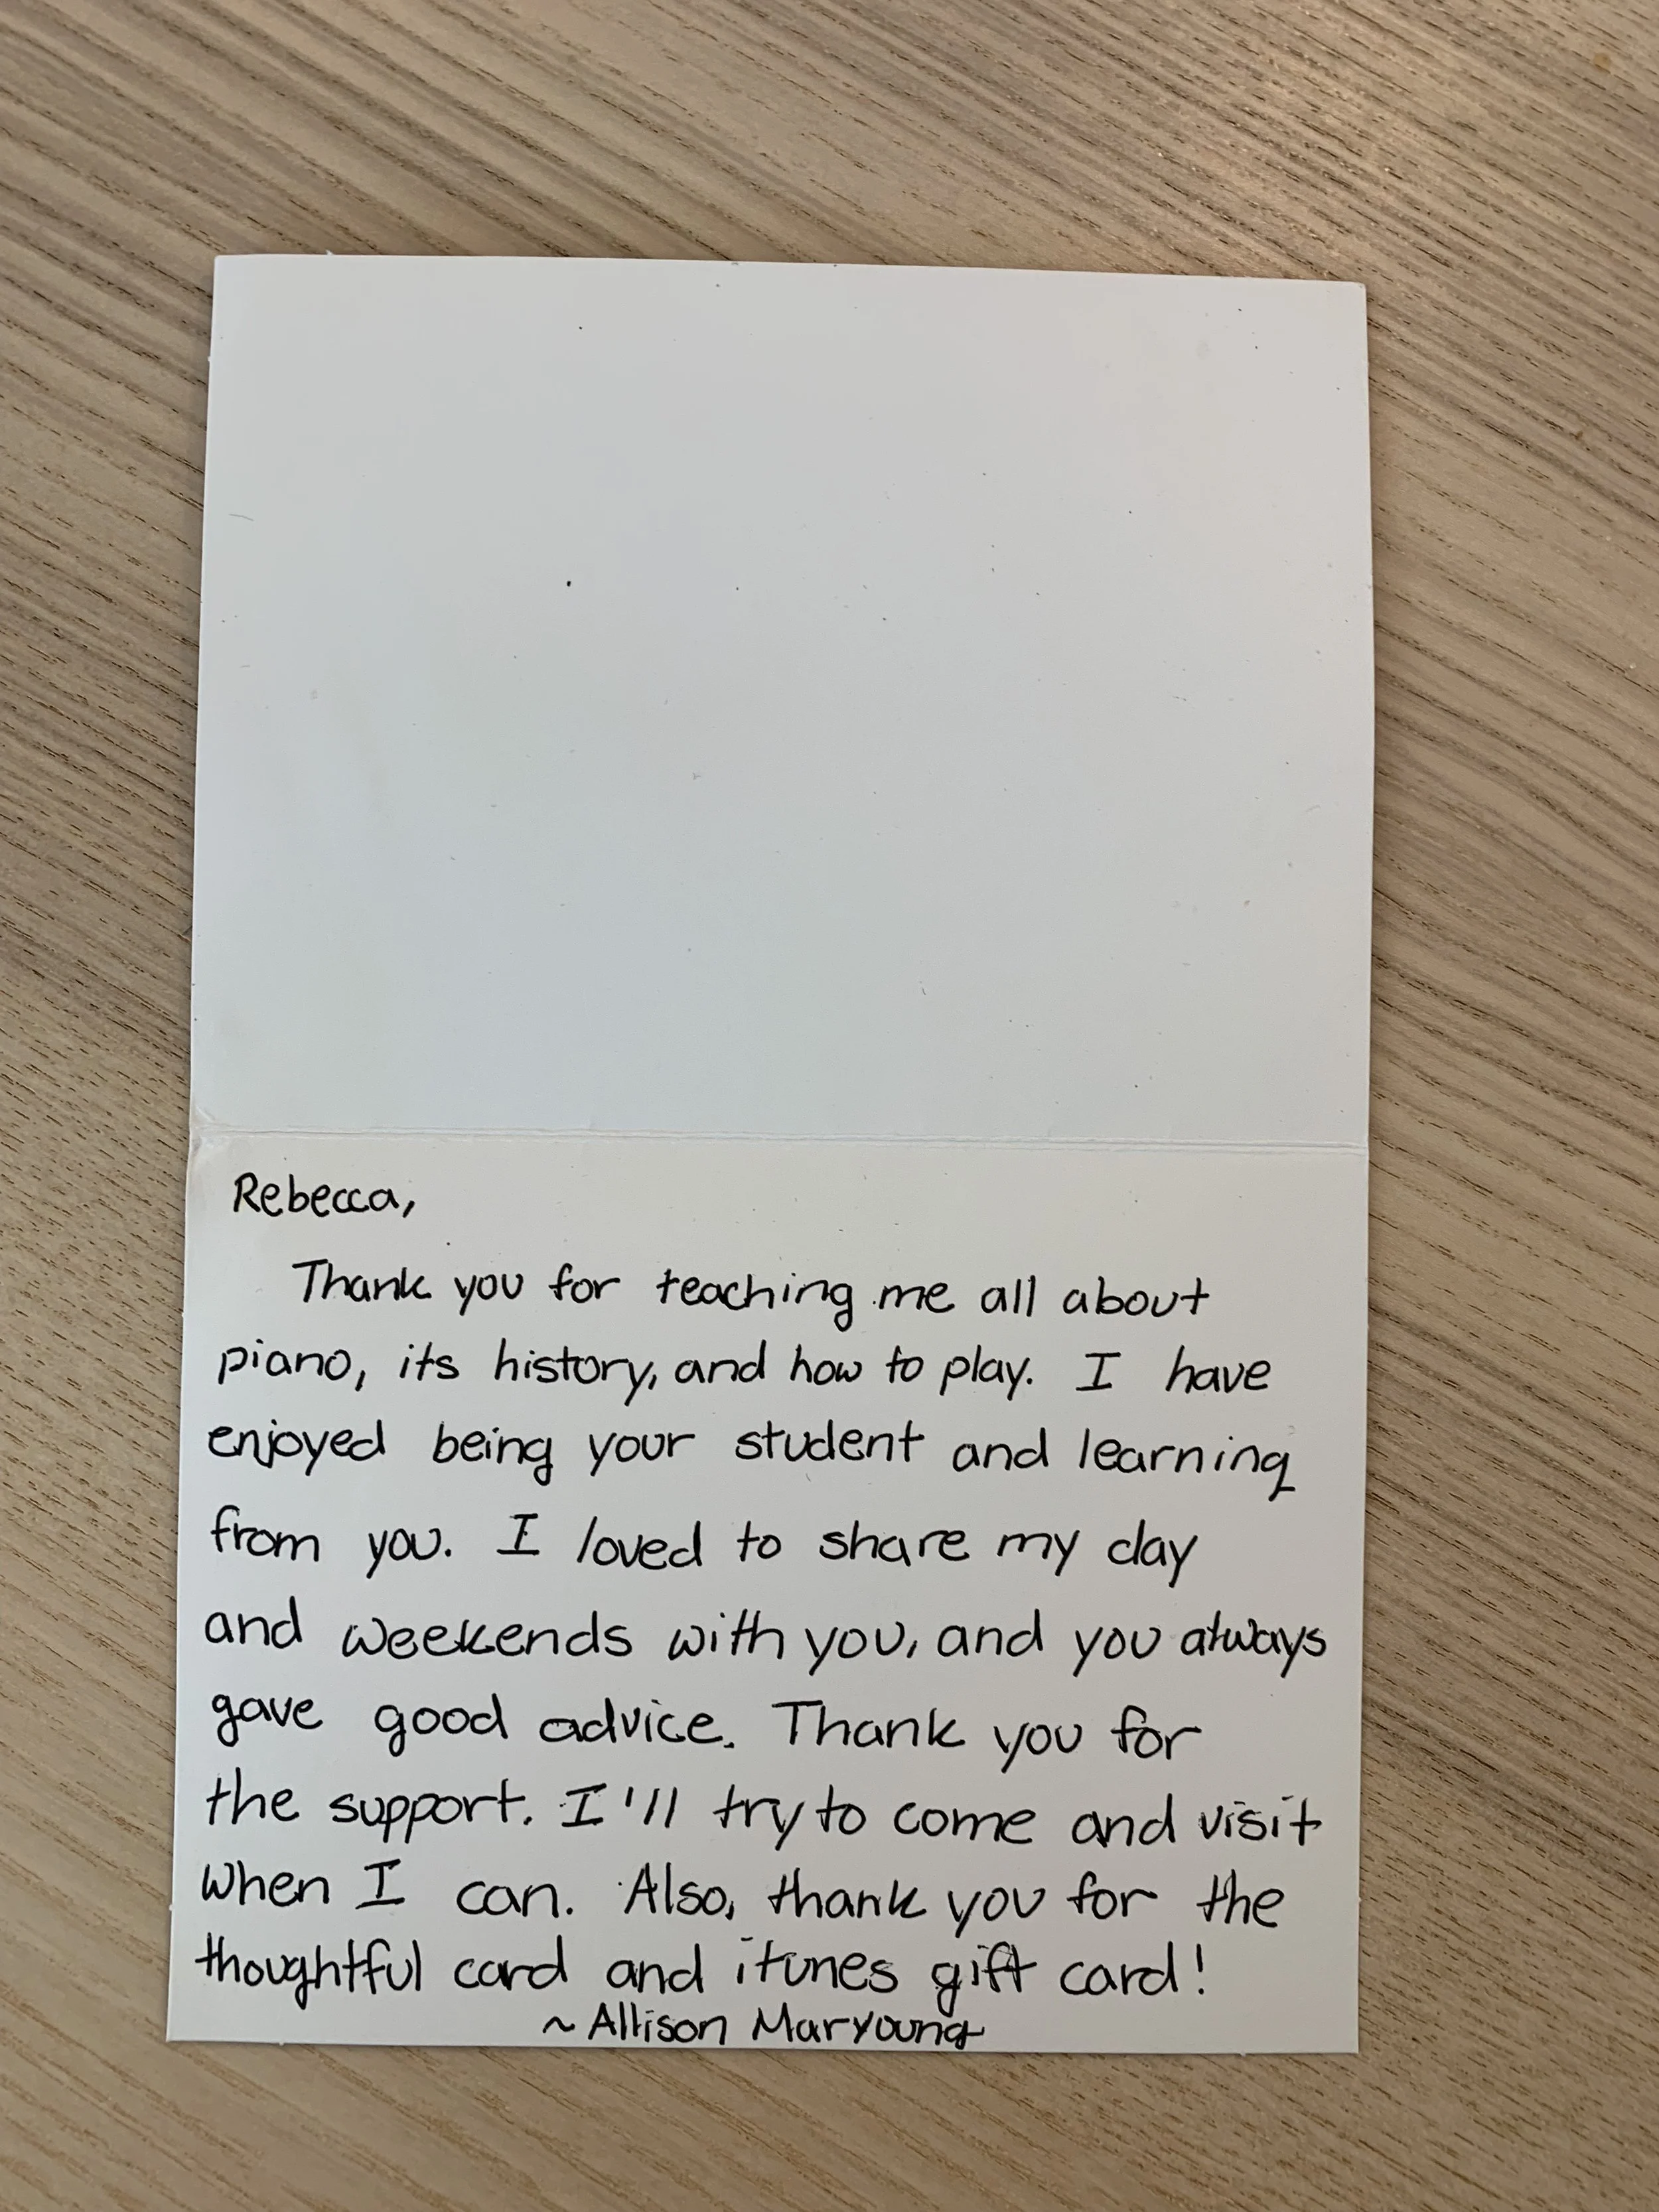 Rebecca,
Thank you for teaching me all about
piano, its history, and how to play. I have
enjoyed being your student and learning
from you. I loved to share my day
and weekends with you, and you always
gave good advice. Thank you for
the support. I'll try to come and visit
when I can. Also, thank you for the
thoughtful card and itunes gift card!
~ Allison Maryoung